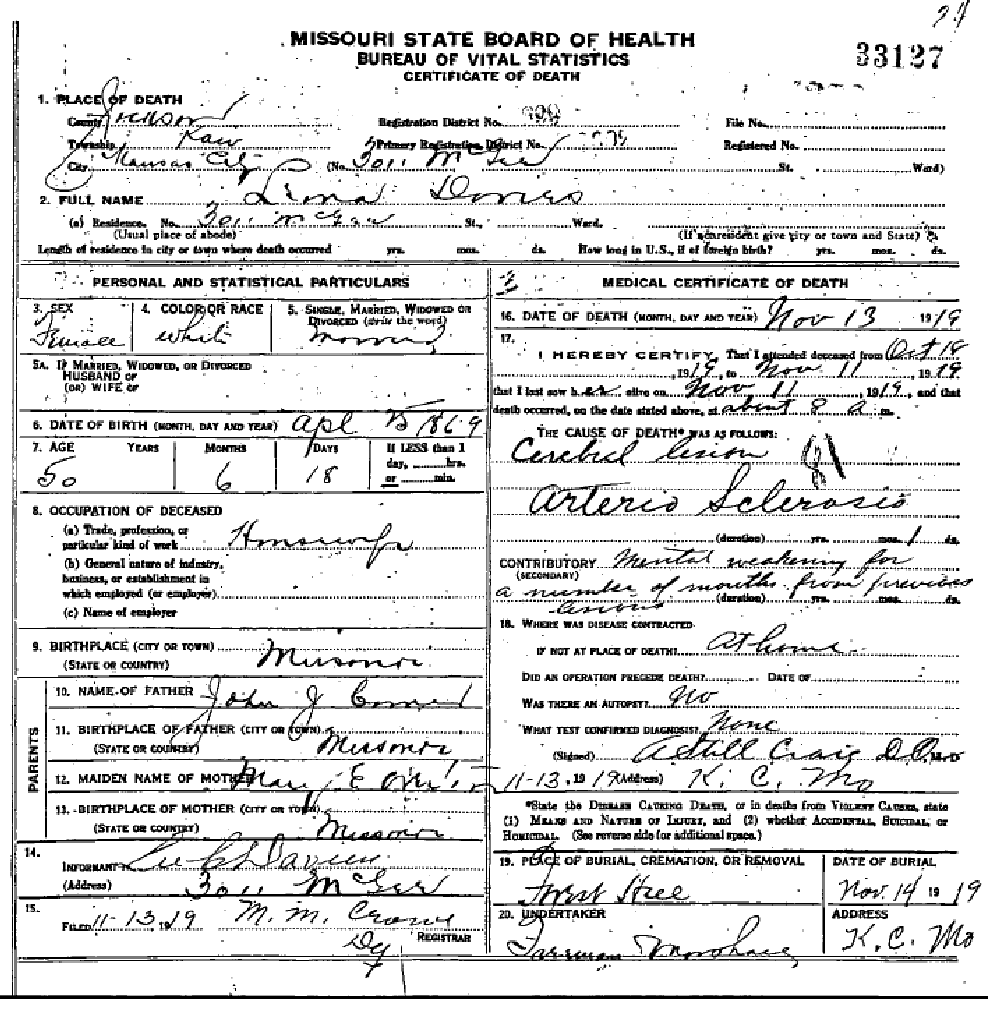 24
MISSOURI STATE BOARD OF HEALTH
BUREAU OF VITAL STATISTICS
CERTIFICATE OF DEATH
33127
1. PLACE OF DEATH
County Jackson Registration District No. 399 File No.
Township Kaw Primary Registration District No. Registered No.
City Kansas City (No. 3011 McGee St. Ward)
2. FULL NAME
(a) Residence, No. 3011 McGee St., Ward,
(Usual place of abode) (If nonresident give city or town and State)
Length of residence in city or town where death occurred yrs. mos. ds. How long in U.S., if of foreign birth? yrs. mos. ds.
PERSONAL AND STATISTICAL PARTICULARS
3. SEX 4. COLOR OR RACE 5. SINGLE, MARRIED, WIDOWED OR
DIVORCED (write the word)
Female white Married
5A. IF MARRIED, WIDOWED, OR DIVORCED
HUSBAND OF
(OR) WIFE OF
6. DATE OF BIRTH (MONTH, DAY AND YEAR) Apl 1869
7. AGE YEARS MONTHS DAYS If LESS than 1
day, hrs.
or min.
50 6 18
8. OCCUPATION OF DECEASED
(a) Trade, profession, or
particular kind of work Housewife
(b) General nature of industry,
business, or establishment in
which employed (or employer)
(c) Name of employer
9. BIRTHPLACE (CITY OR TOWN)
(STATE OR COUNTRY) Missouri
PARENTS
10. NAME OF FATHER John J
11. BIRTHPLACE OF FATHER (CITY OR TOWN)
(STATE OR COUNTRY) Missouri
12. MAIDEN NAME OF MOTHER Mary E
13. BIRTHPLACE OF MOTHER (CITY OR TOWN)
(STATE OR COUNTRY) Missouri
14.
INFORMANT
(Address) 3011 McGee
15.
FILED 11-13, 1919 M. M. Crowe
Dy REGISTRAR
3 MEDICAL CERTIFICATE OF DEATH
16. DATE OF DEATH (MONTH, DAY AND YEAR) Nov 13 1919
17.
I HEREBY CERTIFY, That I attended deceased from Oct 18
, 1919, to Nov 11, 1919
that I last saw her alive on Nov 11, 1919, and that
death occurred, on the date stated above, at about 8 a m.
THE CAUSE OF DEATH* WAS AS FOLLOWS:
Cerebral lesion 81
Arterio Sclerosis
(duration) yrs. mos. 1 ds.
CONTRIBUTORY Mental weakening for
(SECONDARY)
a number of months from previous
lesions (duration) yrs. mos. ds.
18. WHERE WAS DISEASE CONTRACTED
IF NOT AT PLACE OF DEATH? At home
DID AN OPERATION PRECEDE DEATH? DATE OF
WAS THERE AN AUTOPSY? No
WHAT TEST CONFIRMED DIAGNOSIS? None
(Signed) A Still Craig D.O.
11-13, 1919 (Address) K. C. Mo
*State the DISEASE CAUSING DEATH, or in deaths from VIOLENT CAUSES, state
(1) MEANS AND NATURE OF INJURY, and (2) whether ACCIDENTAL, SUICIDAL, or
HOMICIDAL. (See reverse side for additional space.)
19. PLACE OF BURIAL, CREMATION, OR REMOVAL DATE OF BURIAL
Forest Hill Nov. 14 1919
20. UNDERTAKER ADDRESS
K.C. Mo